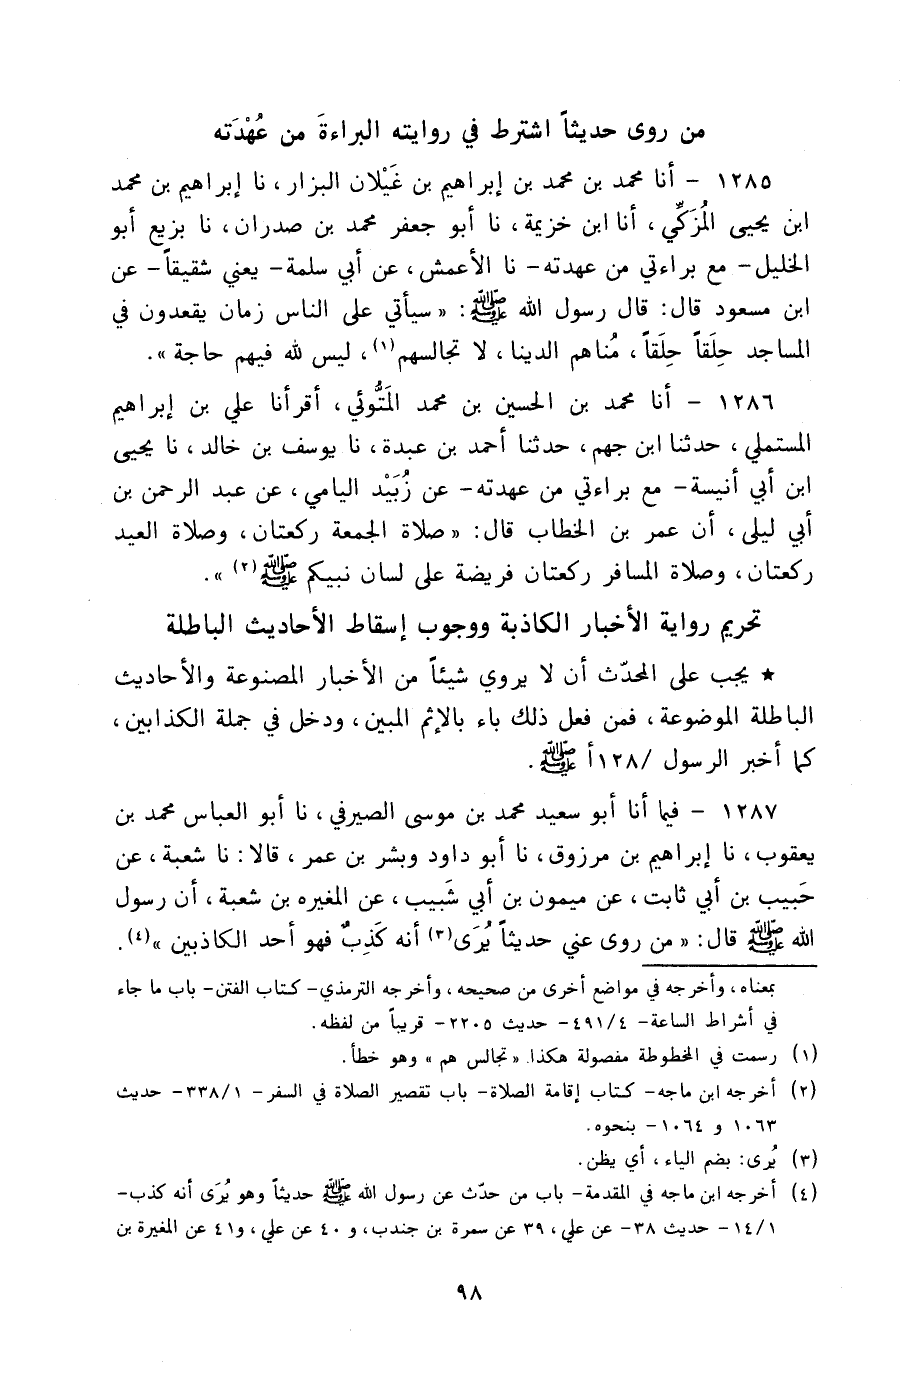 من روى حديثاً اشترط في روايته البراءةَ من عُهْدَته
١٢٨٥ - أنا محمد بن محمد بن إبراهيم بن غَيْلان البزار ، نا إبراهيم بن محمد
ابن يحيى المُزَكِّي ، أنا ابن خزيمة ، نا أبو جعفر محمد بن صدران ، نا بزيع أبو
الخليل - مع براءتي من عهدته - نا الأعمش ، عن أبي سلمة - يعني شقيقاً - عن
ابن مسعود قال : قال رسول الله ﷺ : « سيأتي على الناس زمان يقعدون في
المساجد حِلَقاً حِلَقاً ، مُناهم الدينا ، لا تجالسهم (١) ، ليس لله فيهم حاجة » .
١٢٨٦ - أنا محمد بن الحسين بن محمد المَتُّوثي ، أقرأنا علي بن إبراهيم
المستملي ، حدثنا ابن جهم ، حدثنا أحمد بن عبدة ، نا يوسف بن خالد ، نا يحيى
ابن أبي أنيسة - مع براءتي من عهدته - عن زُبَيْد اليامي ، عن عبد الرحمن بن
أبي ليلى ، أن عمر بن الخطاب قال : « صلاة الجمعة ركعتان ، وصلاة العيد
ركعتان ، وصلاة المسافر ركعتان فريضة على لسان نبيكم ﷺ (٢) » .
تحريم رواية الأخبار الكاذبة ووجوب إسقاط الأحاديث الباطلة
★ يجب على المحدّث أن لا يروي شيئاً من الأخبار المصنوعة والأحاديث
الباطلة الموضوعة ، فمن فعل ذلك باء بالإثم المبين ، ودخل في جملة الكذابين ،
كما أخبر الرسول /١٢٨أ ﷺ .
١٢٨٧ - فيما أنا أبو سعيد محمد بن موسى الصيرفي ، نا أبو العباس محمد بن
يعقوب ، نا إبراهيم بن مرزوق ، نا أبو داود وبشر بن عمر ، قالا : نا شعبة ، عن
حَبيب بن أبي ثابت ، عن ميمون بن أبي شَبيب ، عن المغيره بن شعبة ، أن رسول
الله ﷺ قال : « من روى عني حديثاً يُرَى (٣) أنه كَذِبٌ فهو أحد الكاذبين » (٤) .
بمعناه ، وأخرجه في مواضع أخرى من صحيحه ، وأخرجه الترمذي - كتاب الفتن - باب ما جاء
في أشراط الساعة - ٤٩١/٤ - حديث ٢٢٠٥ - قريباً من لفظه .
(١) رسمت في المخطوطة مفصولة هكذا « تجالس هم » وهو خطأ .
(٢) أخرجه ابن ماجه - كتاب إقامة الصلاة - باب تقصير الصلاة في السفر - ٣٣٨/١ - حديث
١٠٦٣ و ١٠٦٤ - بنحوه .
(٣) يُرى : بضم الياء ، أي يظن .
(٤) أخرجه ابن ماجه في المقدمة - باب من حدّث عن رسول الله ﷺ حديثاً وهو يُرَى أنه كذب -
١٤/١ - حديث ٣٨ - عن علي ، ٣٩ عن سمرة بن جندب ، و ٤٠ عن علي ، و٤١ عن المغيرة بن
٩٨